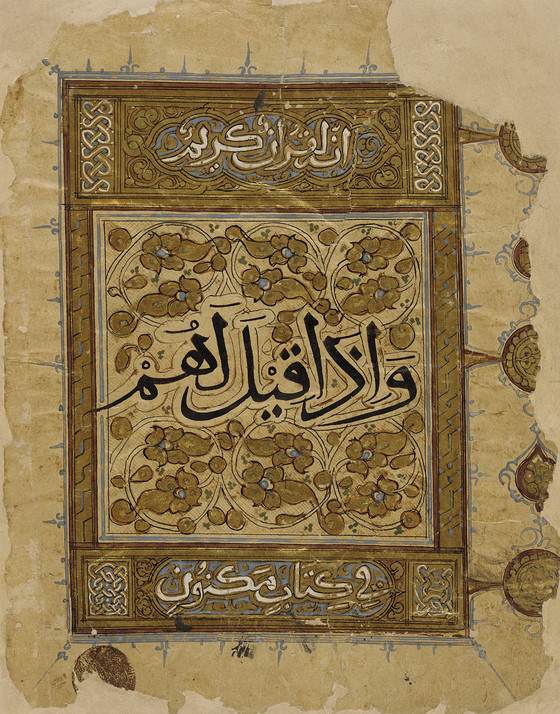 انه لقرآن كريم
وَاذَا قيْلَ لَهُمْ
في كِتابٍ مَكنُونٍ